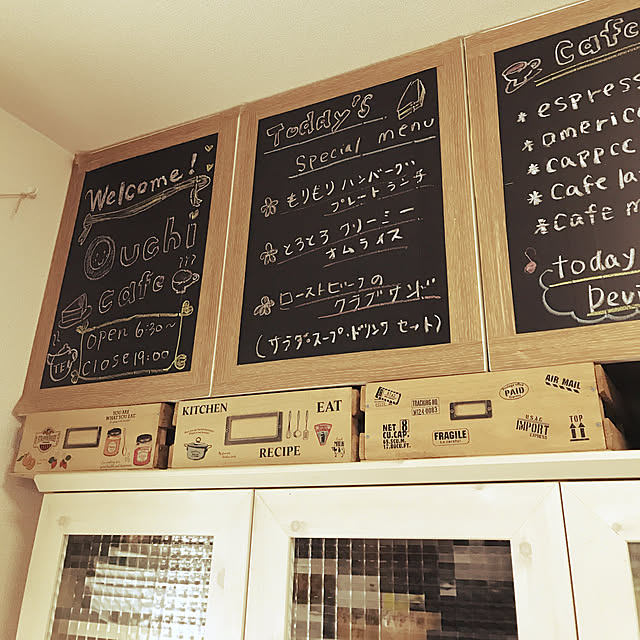 Welcome!
Ouchi
cafe
Open 6:30~
Close 19:00
TEA
Today's
Special menu
もりもりハンバーグ
プレートランチ
とろとろクリーミー
オムライス
ローストビーフの
クラブサンド
(サラダ・スープ・ドリンク セット)
Cafe
*espress
*americ
*cappcc
*cafe la
*cafe m
today
Devi
YOU ARE
WHAT YOU EAT
KITCHEN
EAT
RECIPE
TRACKING NO.
NET 8
CU.CAP.
FRAGILE
PAID
AIR MAIL
U.S.A.C
IMPORT
EXPRESS
TOP